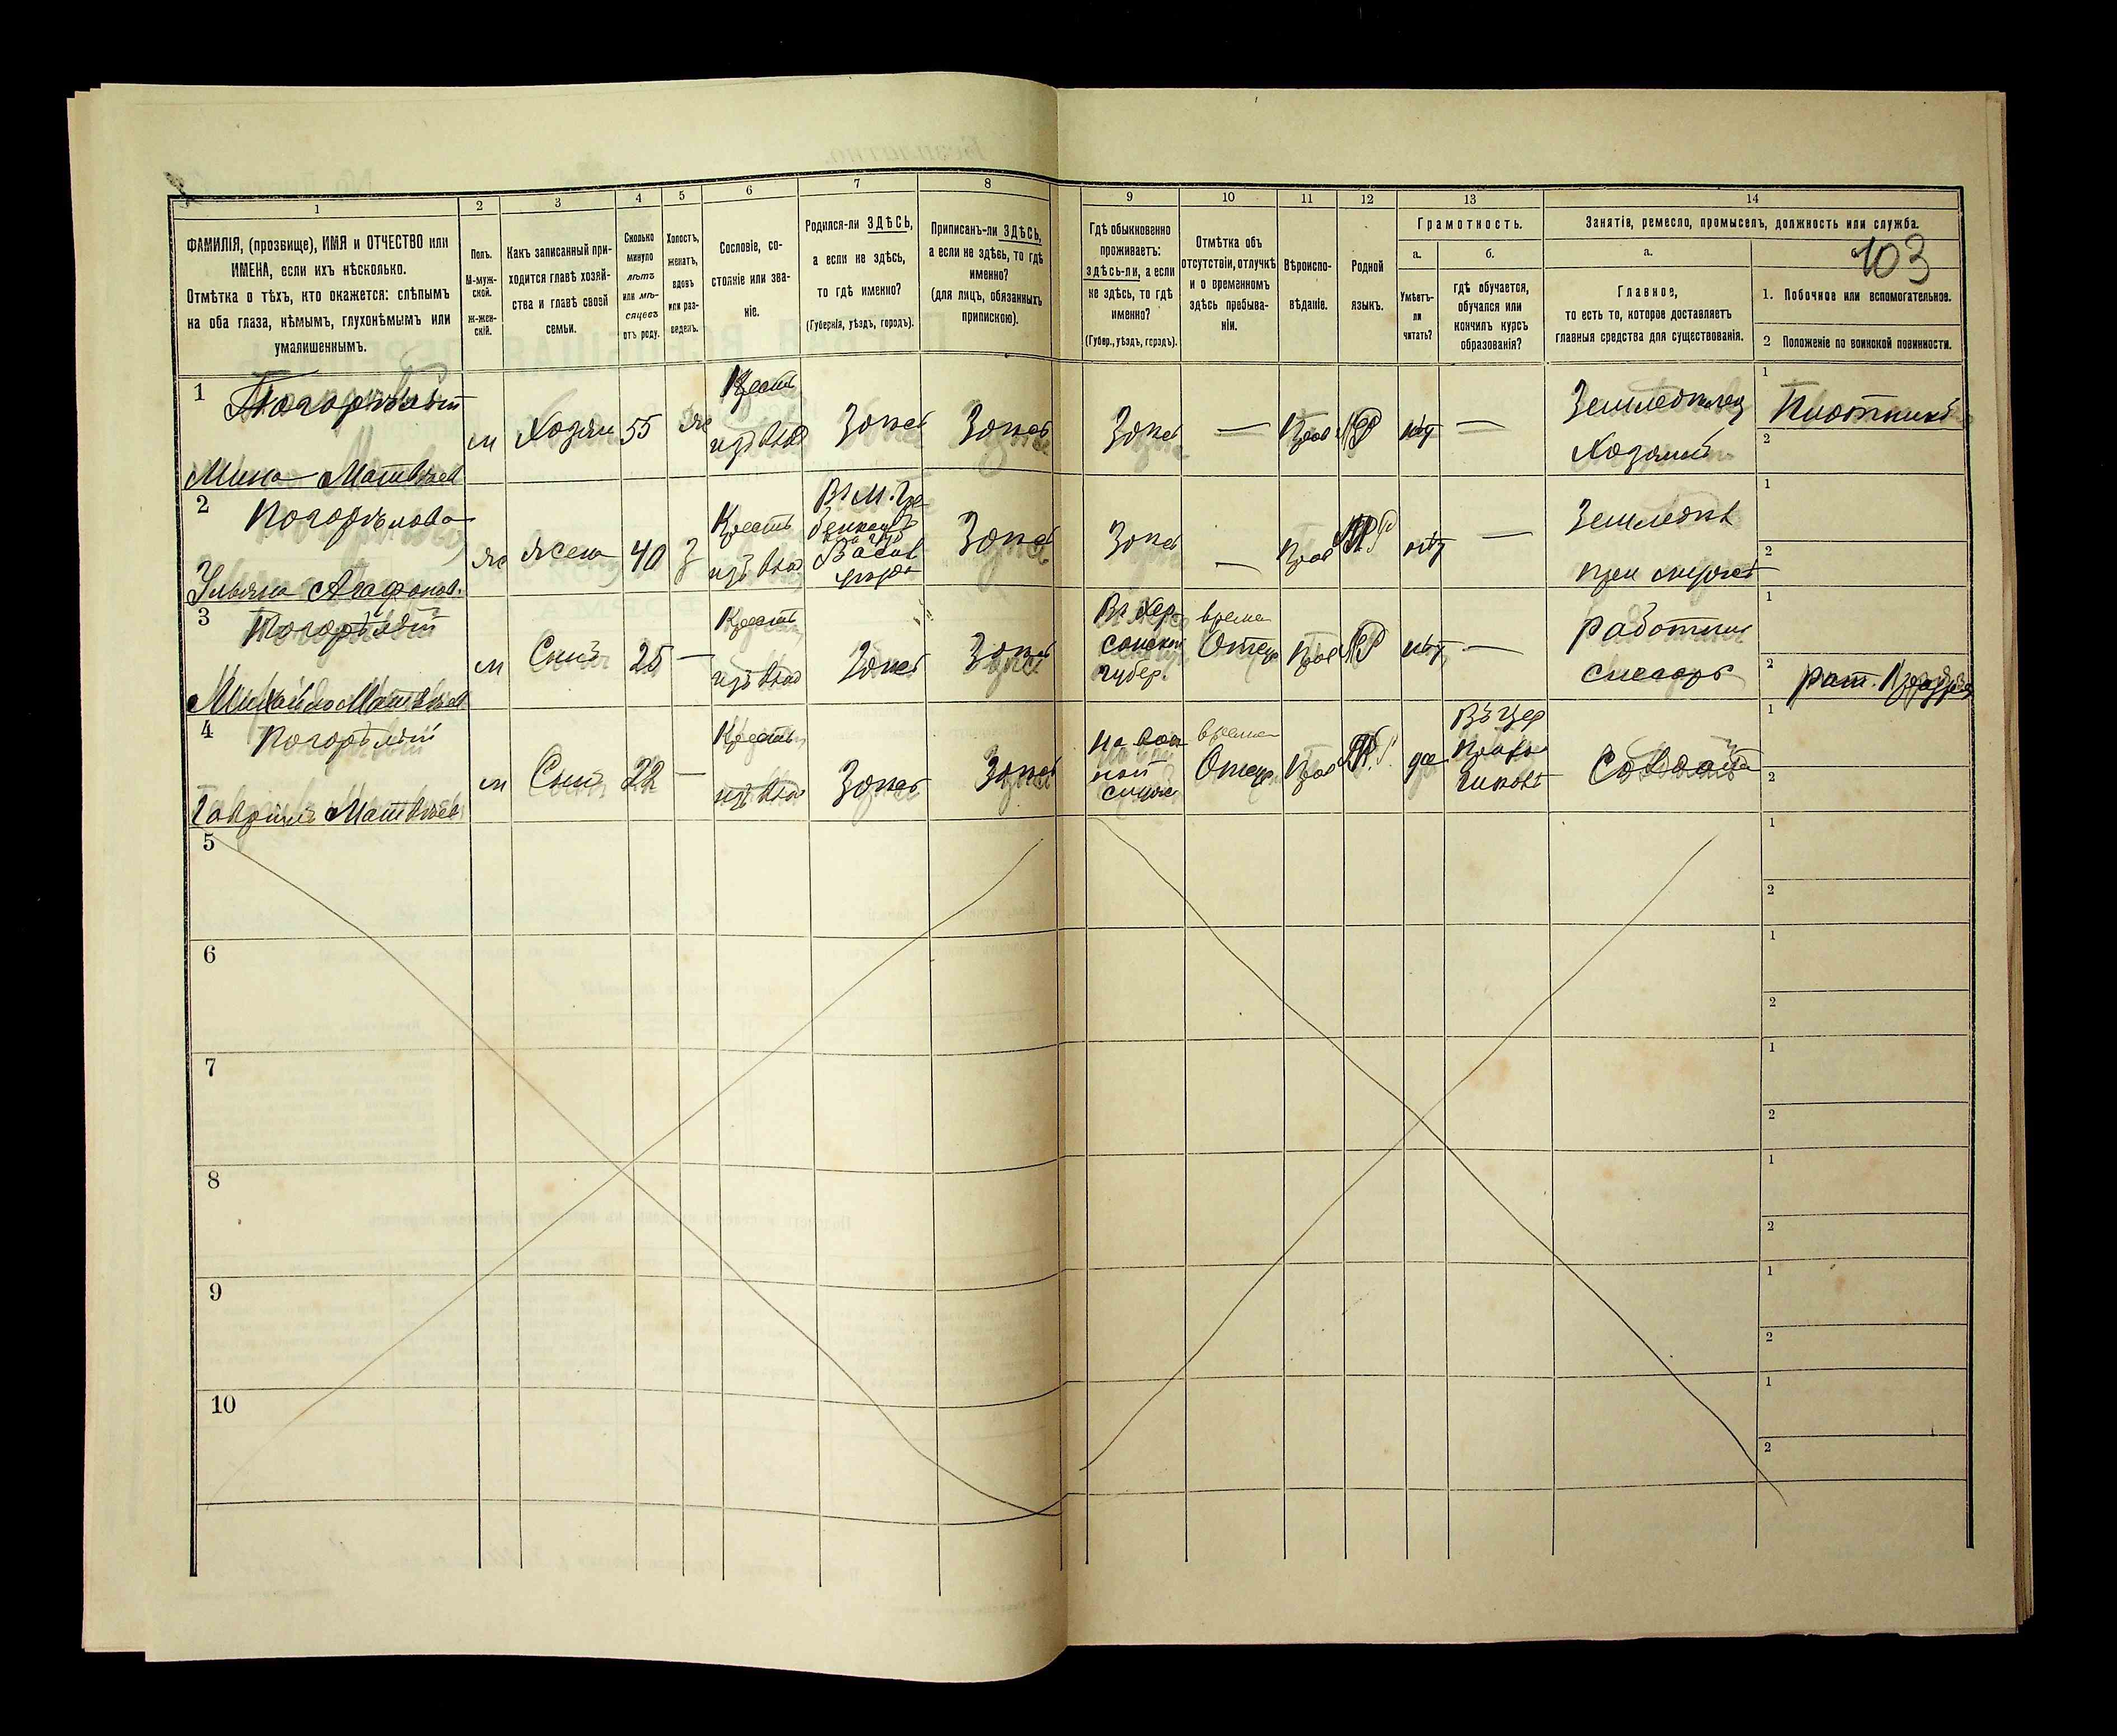 103
1 2 3 4 5 6 7 8 9 10 11 12 13 14
ФАМИЛІЯ, (прозвище), ИМЯ и ОТЧЕСТВО или
ИМЕНА, если ихъ нѣсколько.
Отмѣтка о тѣхъ, кто окажется: слѣпымъ
на оба глаза, нѣмымъ, глухонѣмымъ или
умалишеннымъ.
Полъ.
М-муж-
ской.
Ж-жен-
скій.
Какъ записанный при-
ходится главѣ хозяй-
ства и главѣ своей
семьи.
Сколько
минуло
лѣтъ
или мѣ-
сяцевъ
отъ роду.
Холостъ,
женатъ,
вдовъ
или раз-
веденъ.
Сословіе, со-
стояніе или зва-
ніе.
Родился-ли ЗДѢСЬ,
а если не здѣсь,
то гдѣ именно?
(Губернія, уѣздъ, городъ).
Приписанъ-ли ЗДѢСЬ,
а если не здѣсь, то гдѣ
именно?
(для лицъ, обязанныхъ
припискою).
Гдѣ обыкновенно
проживаетъ:
здѣсь-ли, а если
не здѣсь, то гдѣ
именно?
(Губер., уѣздъ, городъ).
Отмѣтка объ
отсутствіи, отлучкѣ
и о временномъ
здѣсь пребыва-
ніи.
Вѣроиспо-
вѣданіе.
Родной
языкъ.
Грамотность.
а.
Умѣетъ-
ли
читать?
б.
гдѣ обучается,
обучался или
кончилъ курсъ
образованія?
Занятія, ремесло, промыселъ, должность или служба.
а.
Главное,
то есть то, которое доставляетъ
главныя средства для существованія.
1. Побочное или вспомогательное.
2 Положеніе по воинской повинности.
1 Погорѣлый
Мина Матвѣев
м Хозяин 55 же Крест Здѣсь Здѣсь Здѣсь — Прав нѣт —
Земледѣлец
Хозяинъ
1 Плотникъ
2
2 Погорѣлова
Ульяна Агафонов.
же жена 40 З Крест Здѣсь Здѣсь — Прав нѣт —
Земледѣл
1
2
3 Погорѣлый
Михайло Матвѣев
м Сынъ 25 — Крест Здѣсь Здѣсь
Въ Хер-
сонской
губер.
време
Отсу Прав нѣт —
работник
слесарь
1
2 рат.
4 Погорѣлый
Гаврiилъ Матвѣев
м Сынъ 22 — Крест Здѣсь Здѣсь
време
Отсу Прав да
Въ Цер
Приход
Солдатъ
1
2
5 1 2
6 1 2
7 1 2
8 1 2
9 1 2
10 1 2